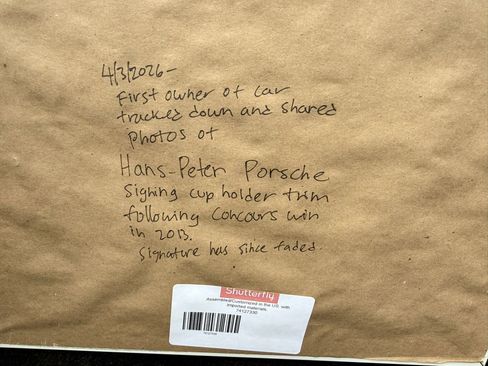 4/3/2026-
First owner of car
tracked down and shared
photos of
Hans-Peter Porsche
signing cup holder trim
following concours win
in 2013.
Signature has since faded
Shutterfly
Assembled/Customized in the U.S. with
imported materials.
74127330